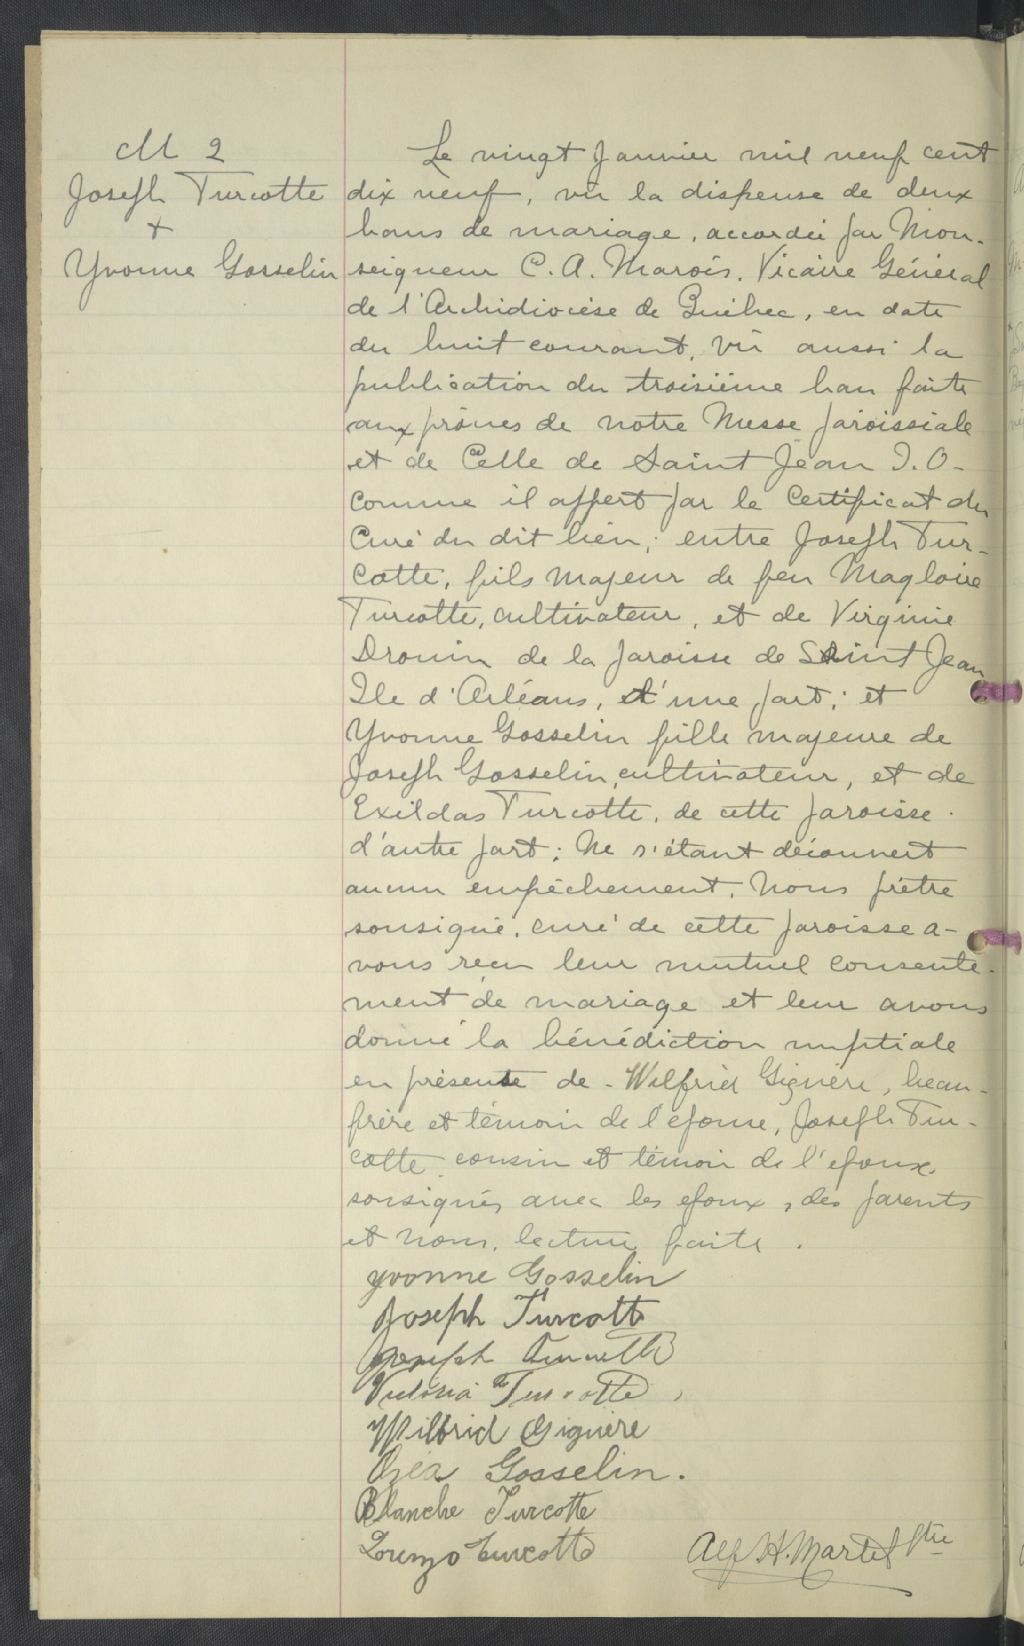 M 2
Joseph Turcotte
+
Yvonne Gosselin
Le vingt Janvier mil neuf cent
dix neuf, vu la dispense de deux
bans de mariage, accordée par Mon-
seigneur C. A. Marois, Vicaire Général
de l'Archidiocèse de Québec, en date
du huit courant, vu aussi la
publication du troisième ban faite
aux prônes de notre Messe paroissiale
et de Celle de Saint Jean I. O-
comme il appert par le Certificat du
Curé du dit lieu; entre Joseph Tur-
cotte, fils majeur de feu Magloire
Turcotte, cultivateur, et de Virginie
Drouin de la paroisse de Saint Jean
Ile d'Orléans, d'une part; et
Yvonne Gosselin fille majeure de
Joseph Gosselin, cultivateur, et de
Exildas Turcotte, de cette paroisse.
d'autre part; Ne s'étant découvert
aucun empêchement, Nous prêtre
sousigné, curé de cette paroisse a-
vons reçu leur mutuel consente-
ment de mariage et leur avons
donné la bénédiction nuptiale
en présente de - Wilfrid Giguère, beau-
frère et témoin de l'épouse, Joseph Tur-
cotte cousin et témoin de l'époux,
sousignés avec les époux, des parents
et nous, lecture faite.
Yvonne Gosselin
Joseph Turcotte
Joseph Turcotte
Victoria Turcotte
Wilbrid Giguère
Gosselin.
Blanche Turcotte
Lorenzo Turcotte
Alf H. Martel Ptre